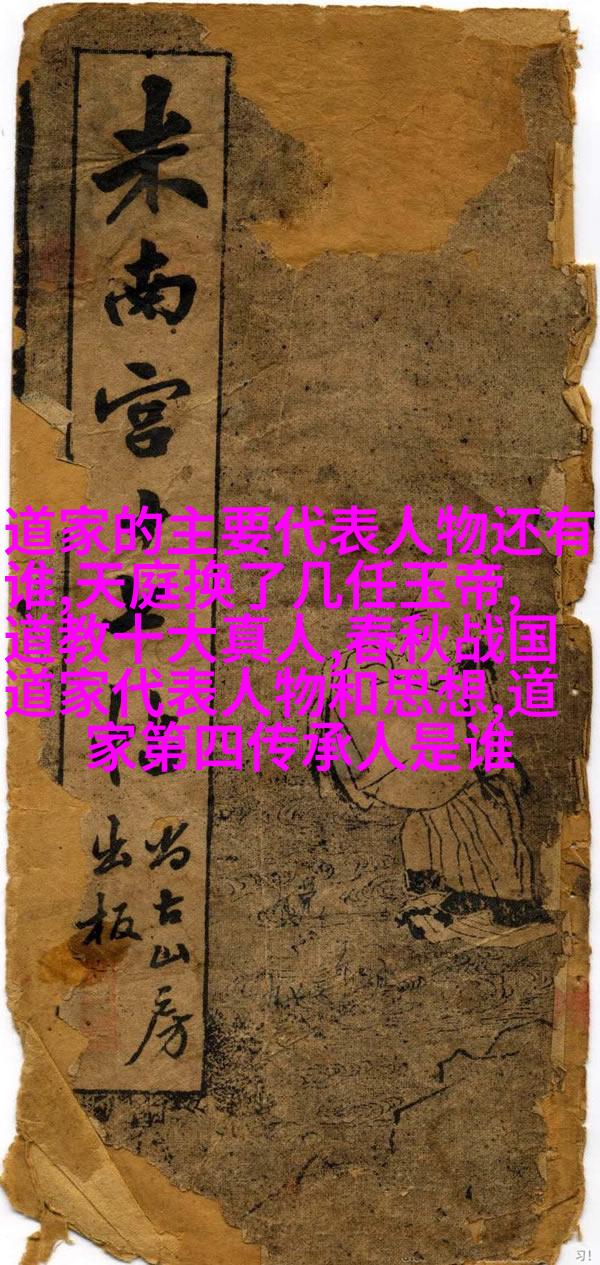 米南宫
尚古山房
出板
道家的主要代表人物还有
谁,天庭换了几任玉帝,
道教十大真人,春秋战国
道家代表人物和思想,道
家第四传承人是谁
习!